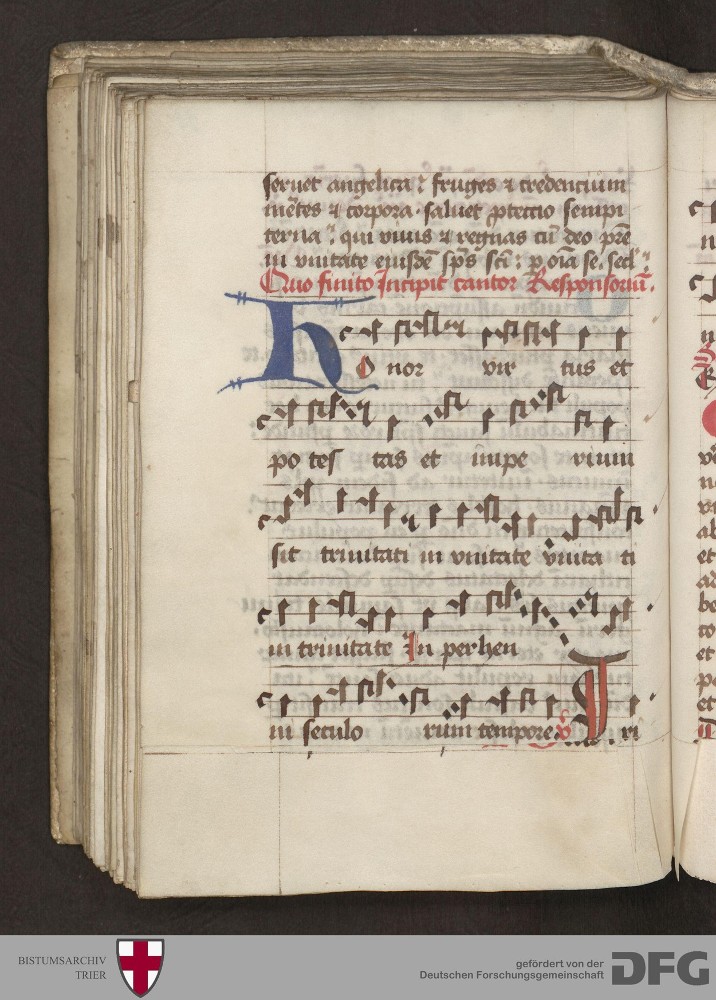 seruet angelica: fruges ⁊ credencium
mētes ⁊ corpora · saluet ꝓtectio sempi
terna: qui viuis ⁊ regnas cū deo pr̄e
in vnitate eiusdē sp̄s sc̄i: ꝑ oīa se. secl'
Quo finito Incipit cantor Responsoriū.
HO nor vir tus et
po tes tas et impe rium
sit trinitati in vnitate vnita ti
in trinitate In perhen
ni seculo rum tempore v̄ Tri
BISTUMSARCHIV
TRIER
gefördert von der
Deutschen Forschungsgemeinschaft
DFG